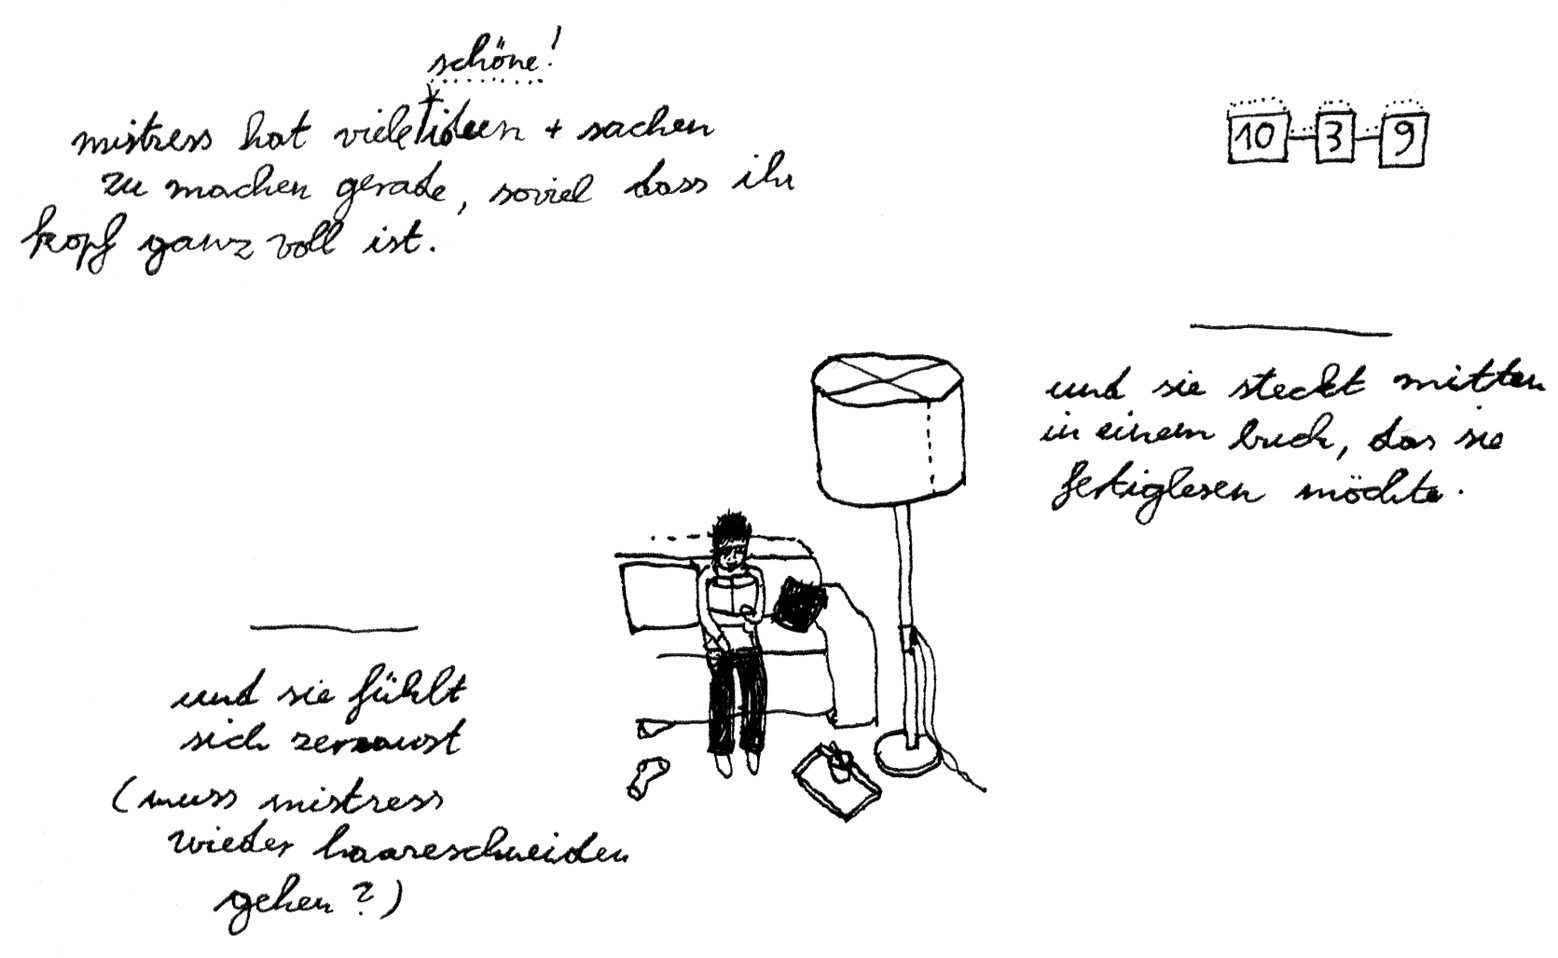 schöne!
mistress hat viele ideen + sachen
zu machen gerade, soviel dass ihr
kopf ganz voll ist.
10-3-9
und sie steckt mitten
in einem buch, das sie
fertiglesen möchte.
und sie fühlt
sich zerzaust
(muss mistress
wieder haareschneiden
gehen?)